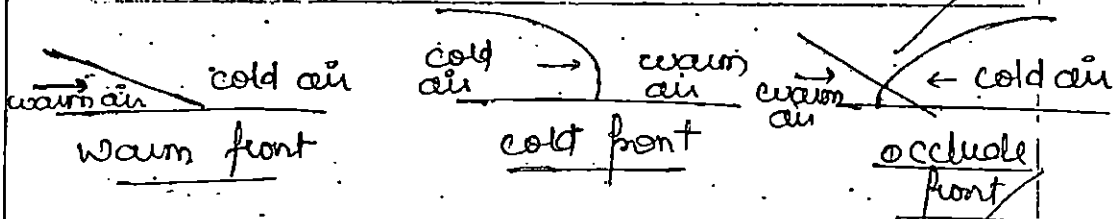 warm air → cold air
warm front
cold air → warm air
cold front
warm air → ← cold air
occlude front